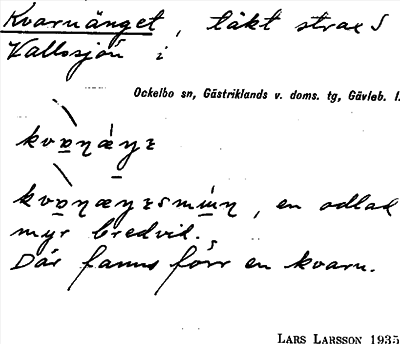 Kvarnänget, täkt strax S
Vallsjön i
Ockelbo sn, Gästriklands v. doms. tg, Gävleb. l.
, en odlad
myr bredvid.
Där fanns förr en kvarn.
LARS LARSSON 1935